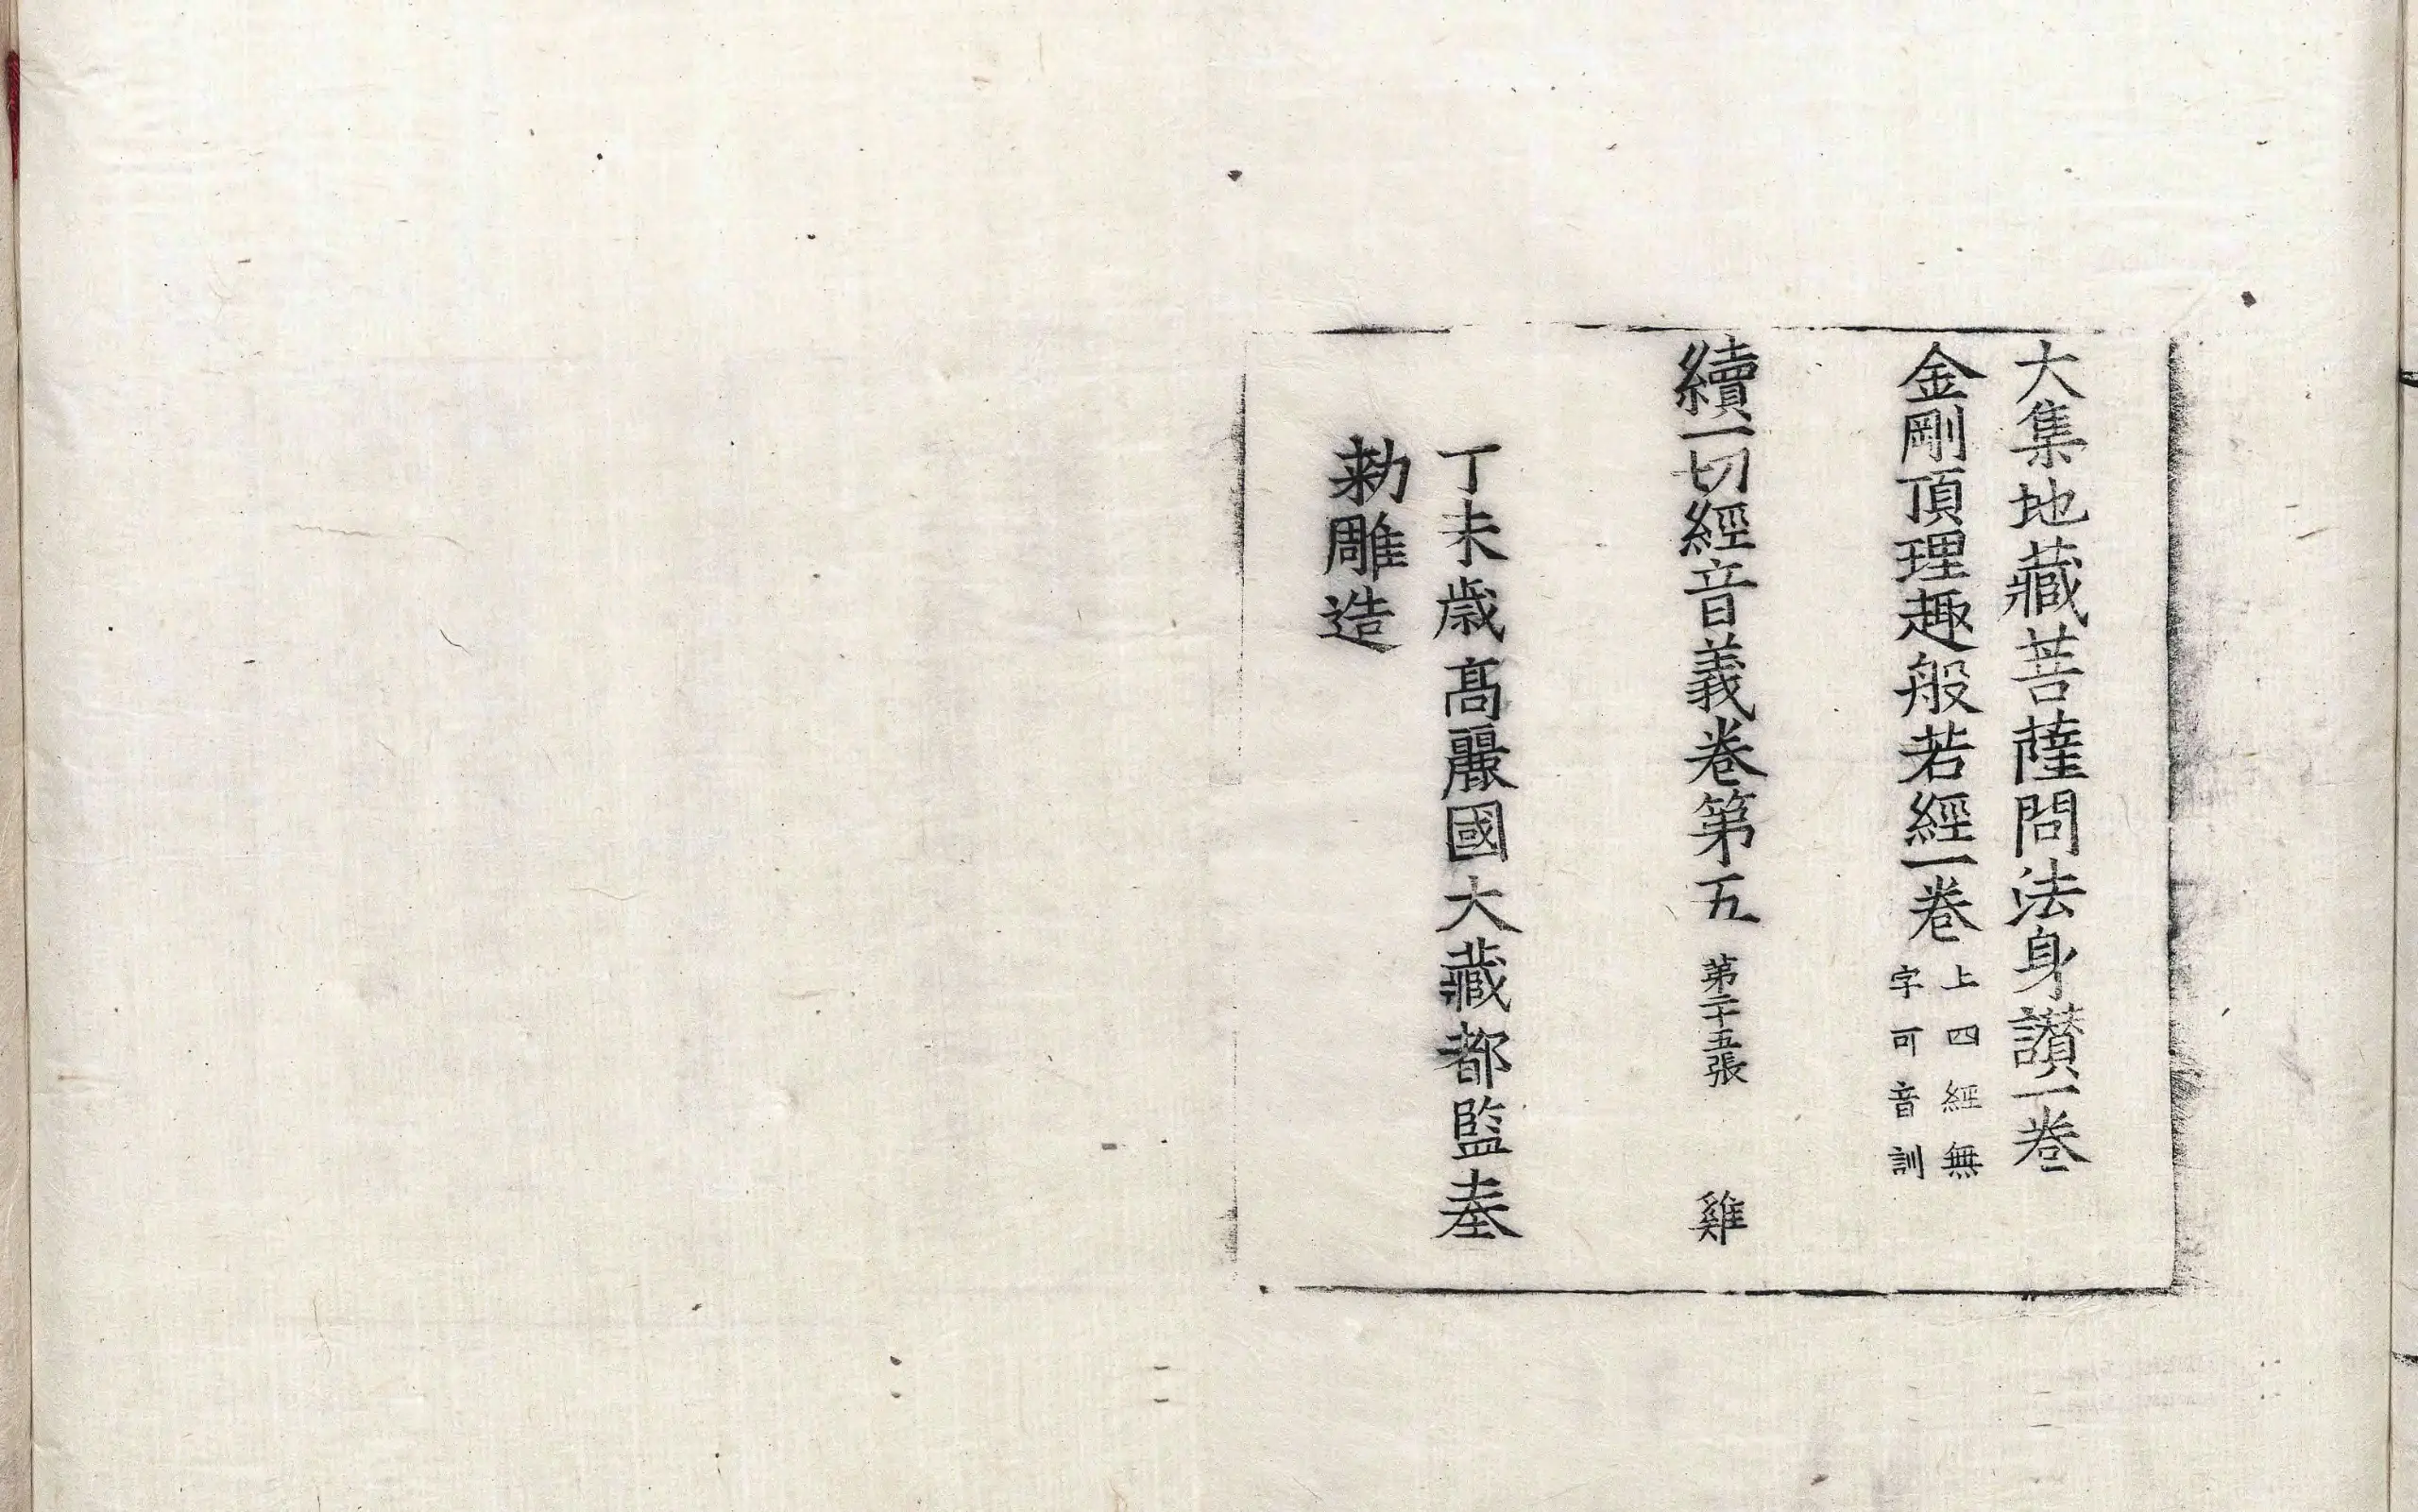 大集地藏菩薩問法身讃一卷
金剛頂理趣般若經一卷 上四經無
字可音訓
續一切經音義卷第五 第二十五張 雞
丁未歲高麗國大藏都監奉
勅雕造